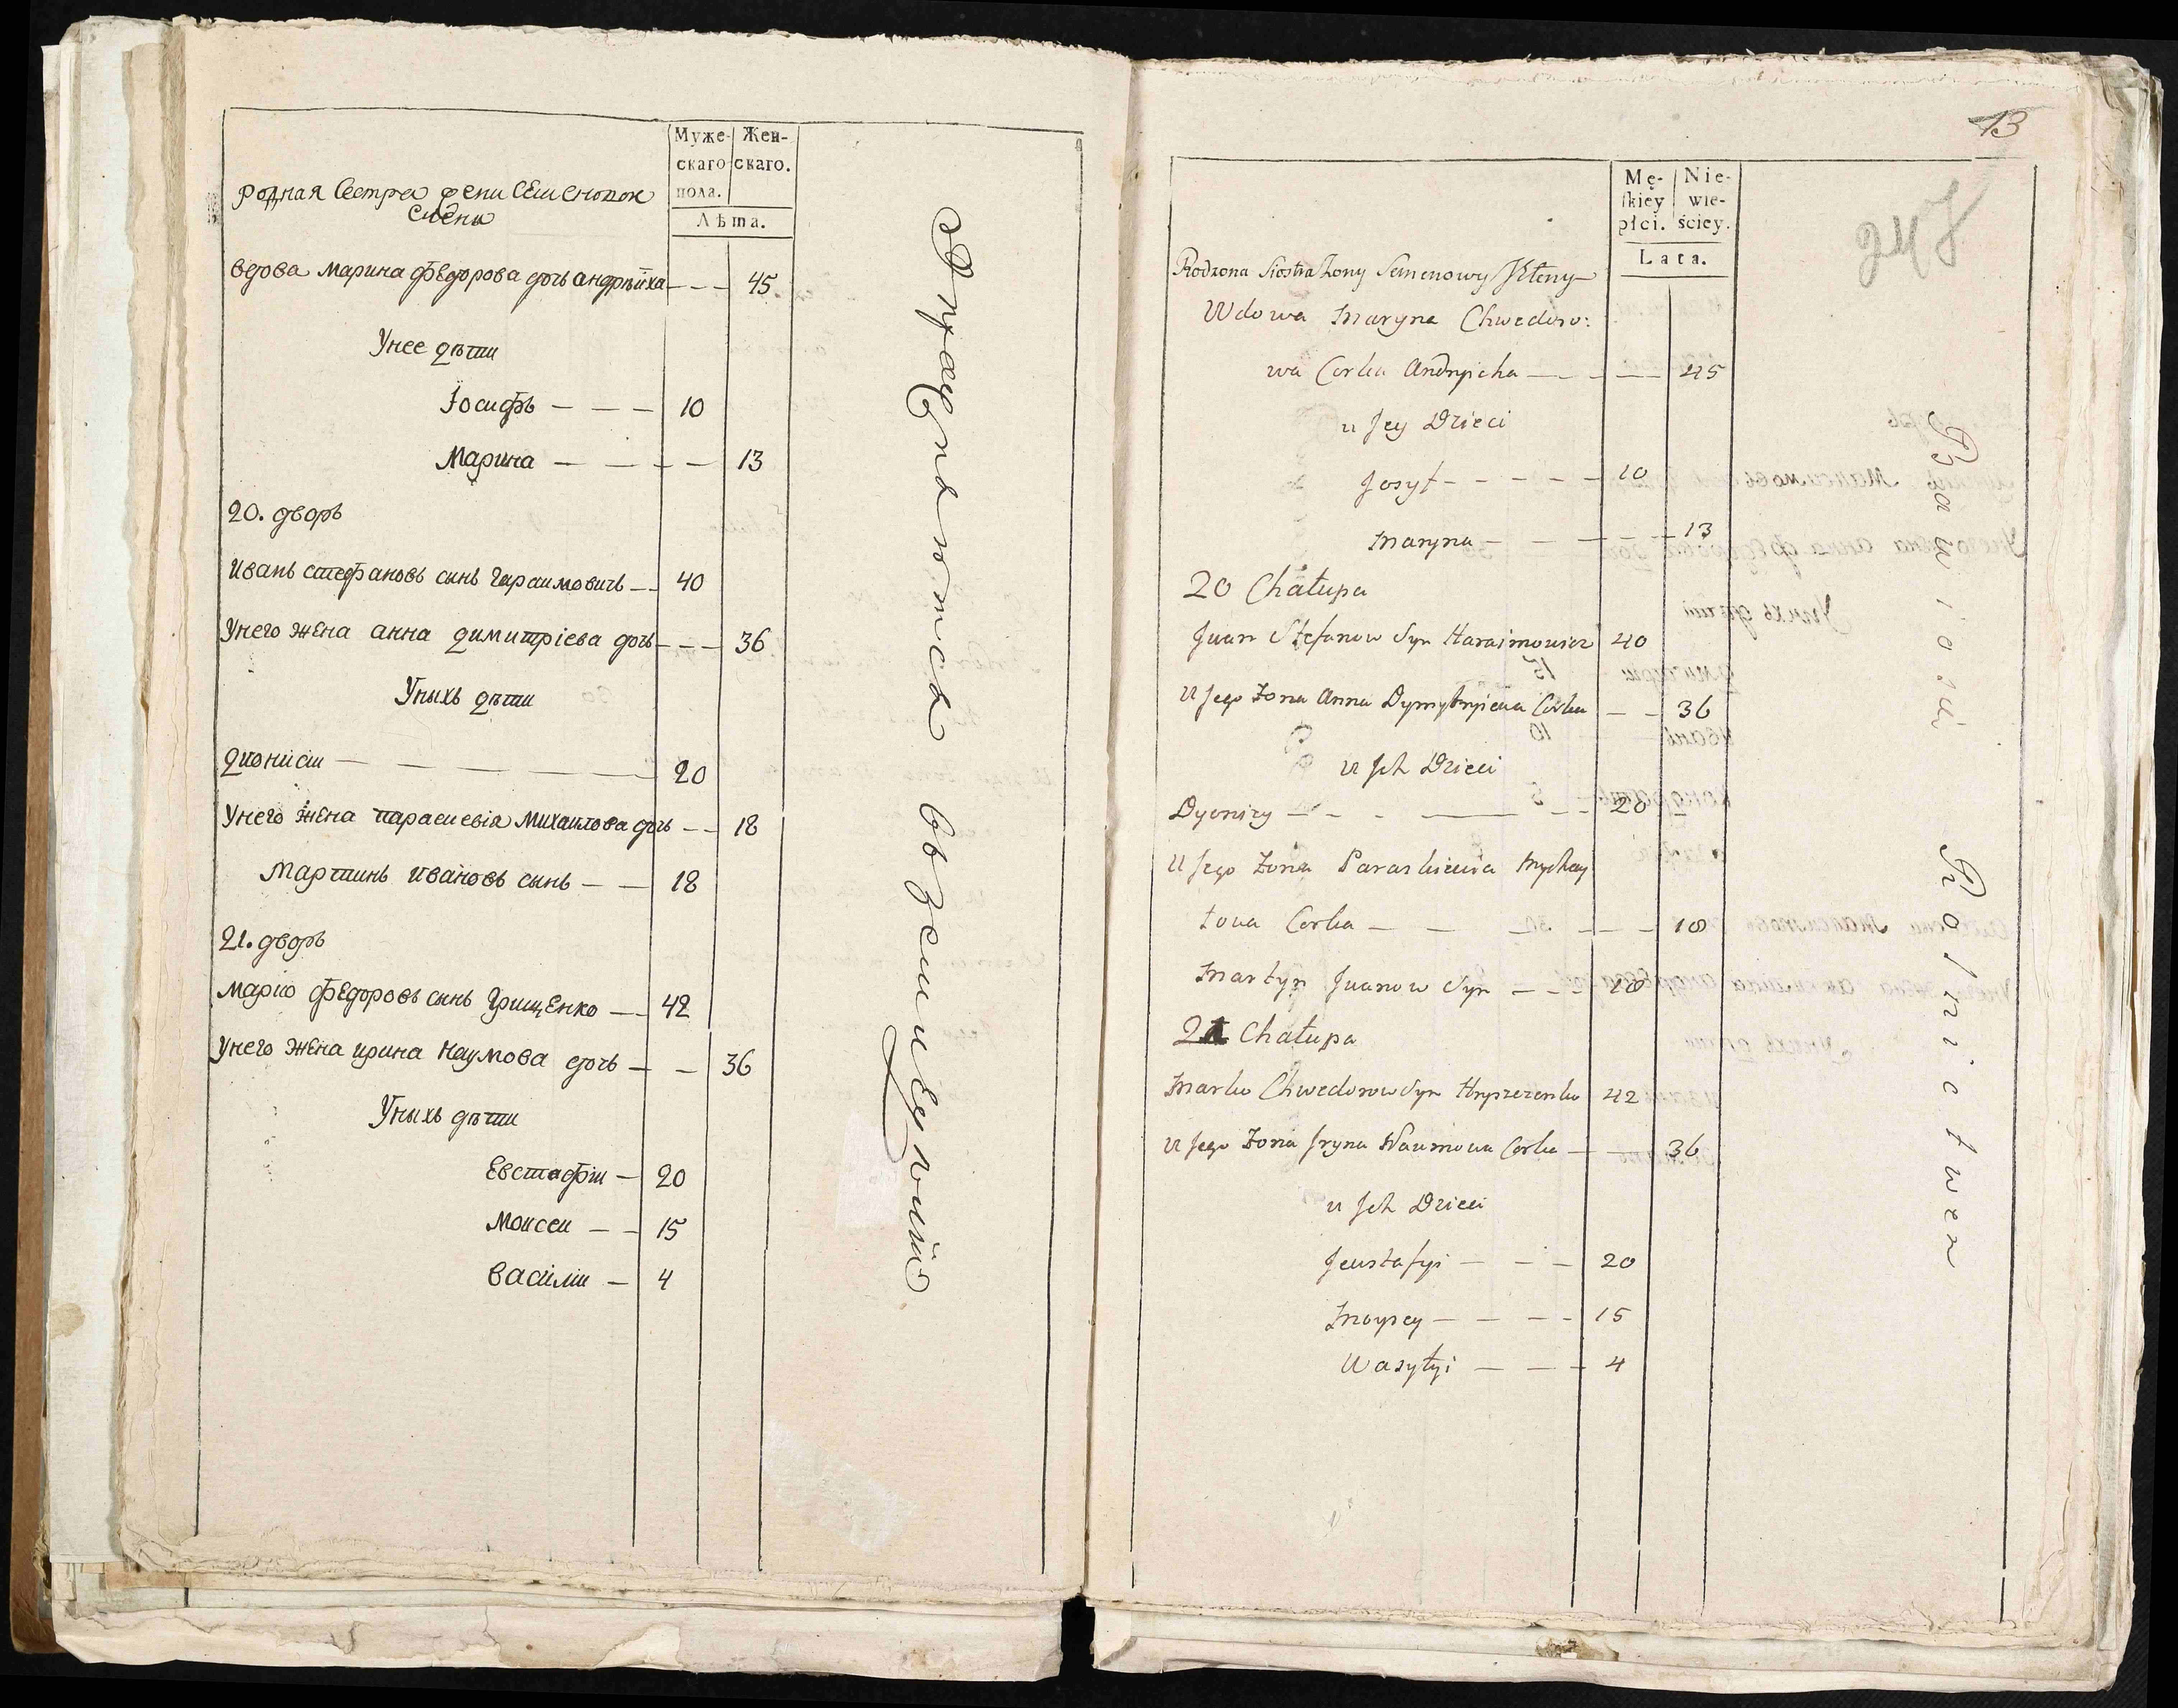 Муже- Жен-
скаго скаго.
пола.
Лѣта.
родная Сестра
Вдова марина федорова дочь андрѣиха — — — 45
Унее дѣти
Іосифъ — — — 10
Марина — — — — 13
20. дворъ
Иванъ стефановъ сынъ Гараимовичъ — — 40
Унего жена анна димитріева дочь — — — 36
Уныхъ дѣти
20
Унего жена параскевія михаилова дочь — — 18
Мартинъ ивановъ сынъ — — 18
21. дворъ
федоровъ сынъ Грищенко — — 42
Унего жена ирина наумова дочь — — 36
Уныхъ дѣти
Евстафіи — 20
Моисеи — — 15
Василіи — 4
Упражняются въ земледѣліи
13
247
Mę- Nie-
skiey wie-
płci. ściey.
Lata.
Rodzona Siostra Zony Semenowy
Wdowa Maryna Chwedoro:
wa Corka Andryicha — — — — 45
u Jey Dzieci
Josyf — — — — — 10
Maryna — — — — — 13
20 Chałupa
Jwan Stefanow Syn Haraimowicz 40
U Jego Zona Anna Dymytryiewa Corka — — 36
U Jch Dzieci
Dyonizy — — — — — — 20
U Jego Zona Paraskiewia Mychay
łowa Corka — — — — — 18
Martyn Jwanow Syn — — — 18
21 Chałupa
Marko Chwedorow Syn Hryszczenko 42
U Jego Zona Jryna Naumowa Corka — — 36
u Jch Dzieci
Jewstafyi — — — 20
Moysey — — — — 15
Wasyłyi — — — 4
Bawio się Rolnictwem